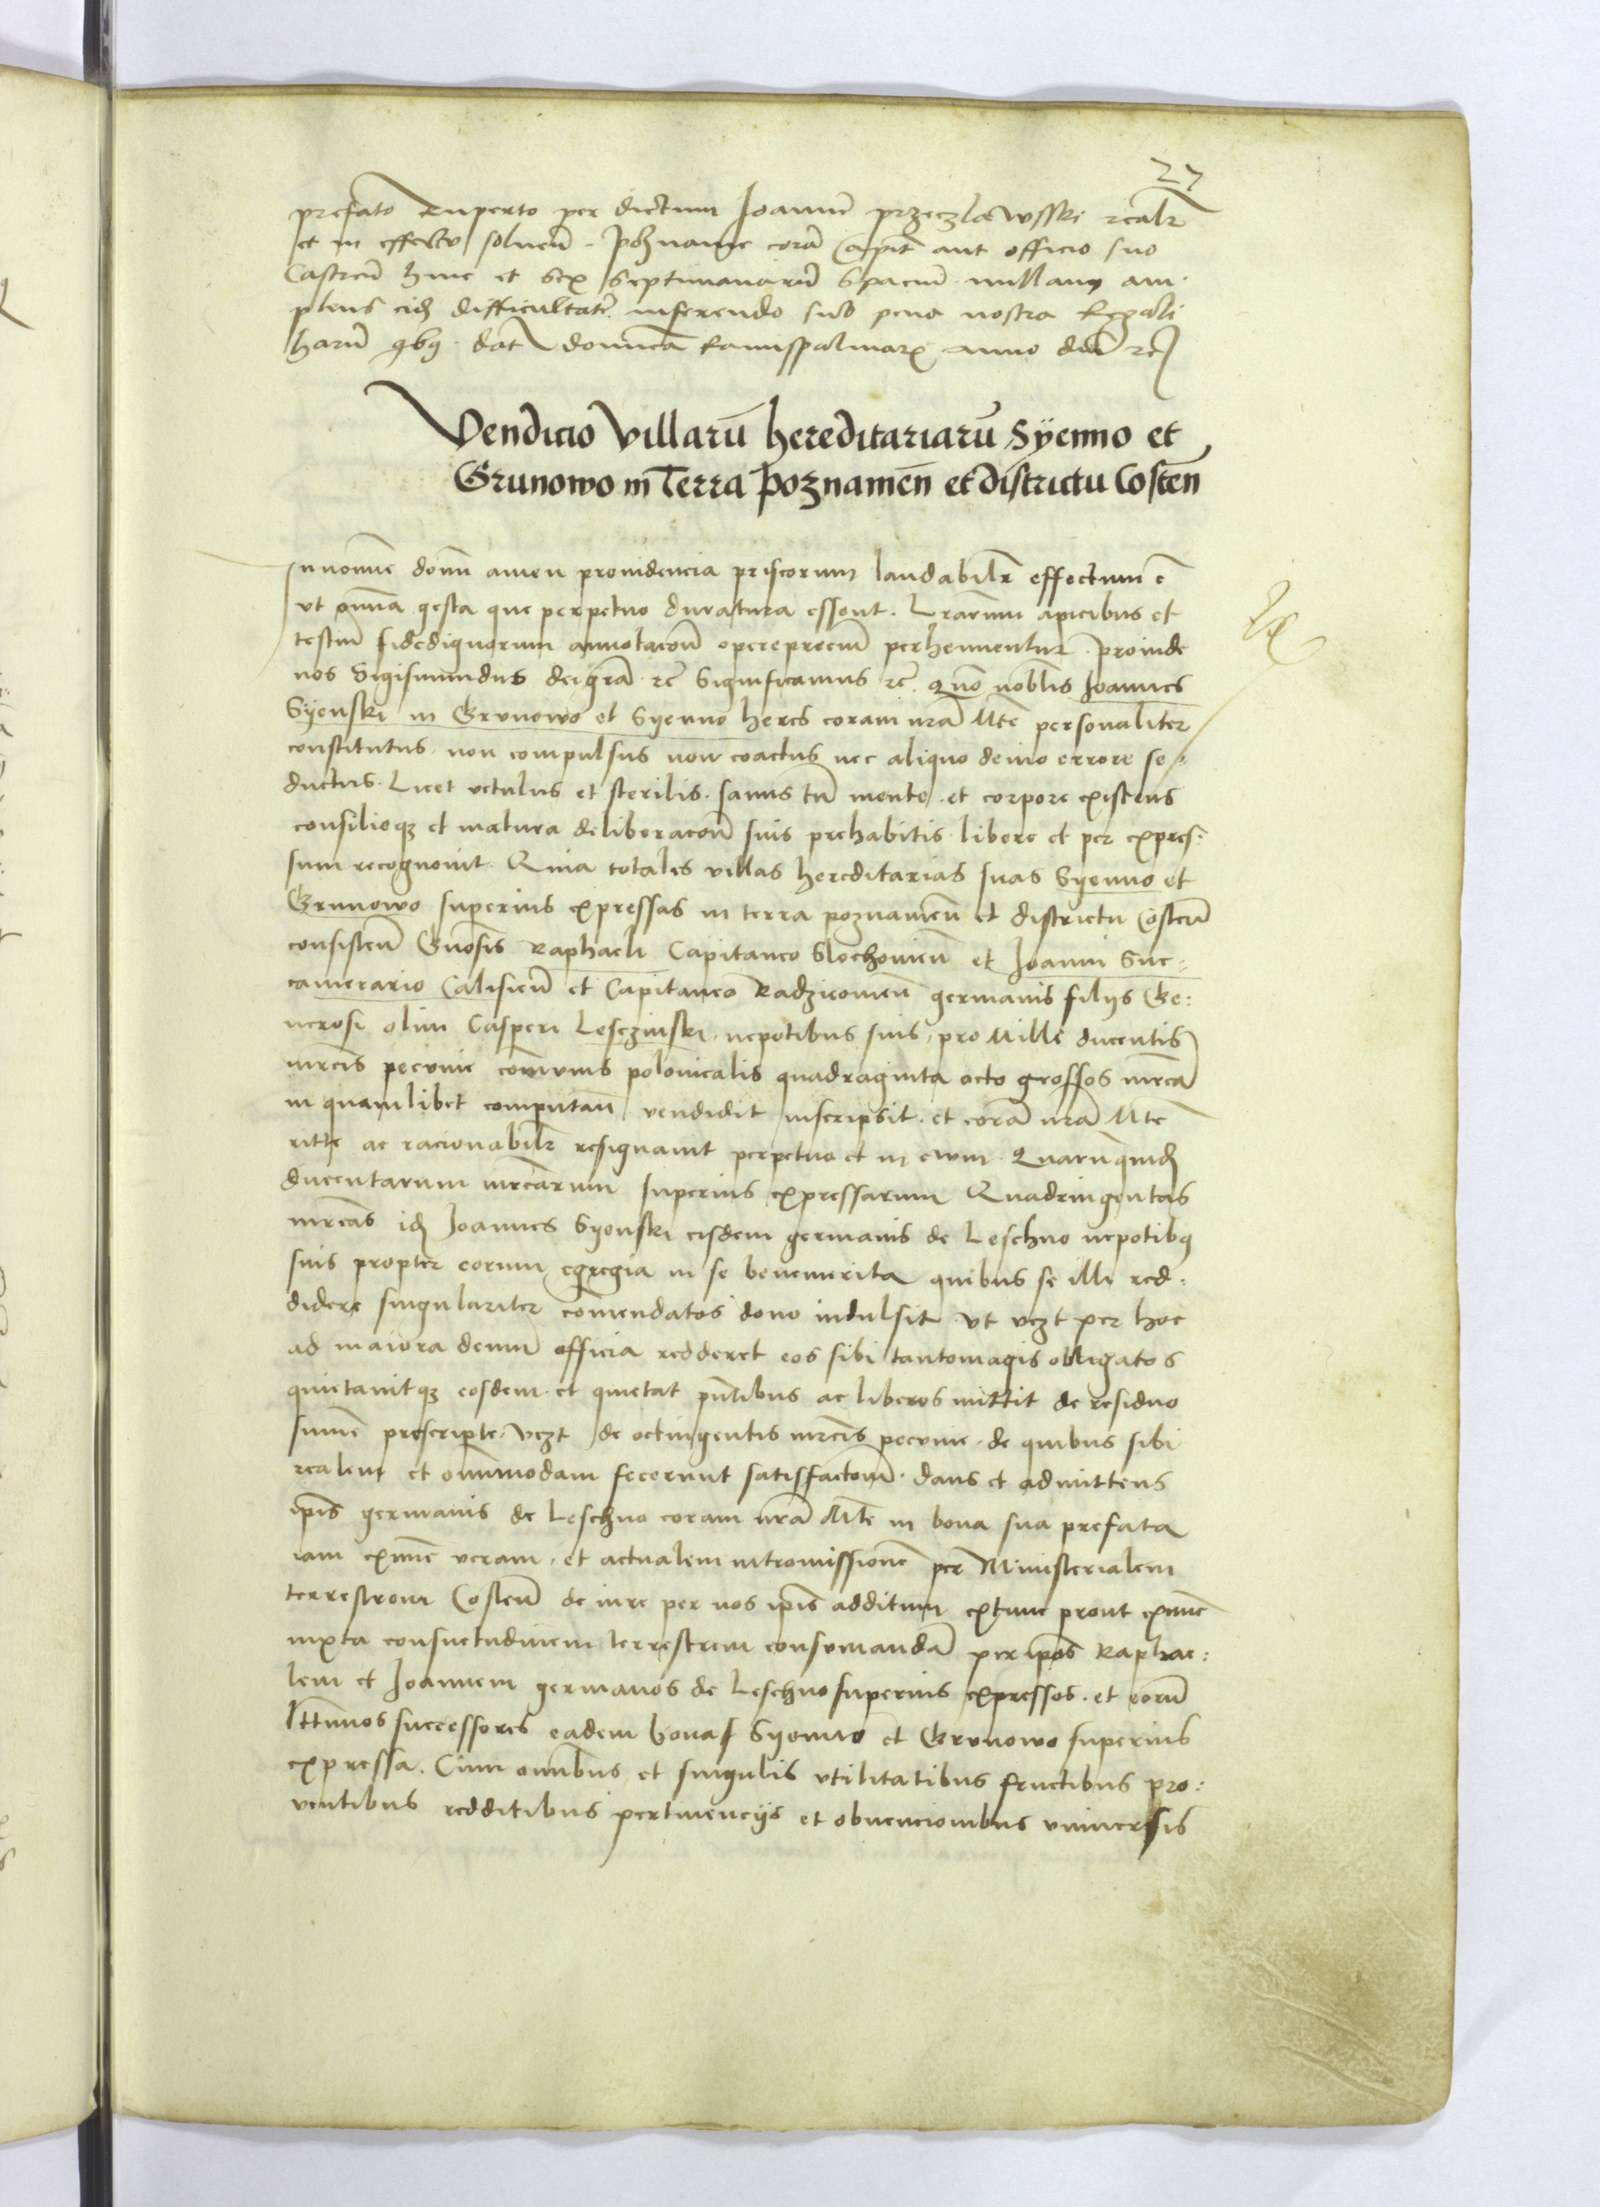 27
prefato Ruperto per dictum Joannē przeczlawsski realr̄
et in effectu soluen̄. poznanie corā Capitō aut officio suo
Castreñ hinc et sex septimanarū spaciū. nullam am-
plius eiꝫ difficultatē inferendo sub pena nostra Regali
harū qbꝫ. dat̄ dominicā Ramispalmarꝫ anno dnī rc̄
Vendicio villarū hereditariarū Syenno et
Grunowo in Terra poznamen̄ et districtu Costen̄
In nomine domī amen prouidencia priscorum laudabilr̄ effectum ē
vt om̄ia gesta que perpetuo duratura essent. Lr̄arum apicibus et
testiū fidedignorum annotacōne operepreciū perhennentur. proinde
nos Sigismundus dei grā rc̄ Significamus rc̄. quō nobilis Joannes
Syenski in Grunowo et Syenno heres coram nrā Mte personaliter
constitutus. non compulsus non coactus nec aliquo deuio errore se-
ductus. Licet vetulus et sterilis. sanus tn̄ mente. et corpore existens
consilioqꝫ et matura deliberacōne suis prehabitis. libere et per expres-
sum recognouit. Quia totales villas hereditarias suas Syenno et
Grunowo superius expressas in terra poznamen̄ et districtu Costen̄
consisten̄ Gnosis Raphaeli Capitaneo Slochouien̄ et Joanni Suc-
camerario Calisien̄ et Capitaneo Radzieiouien̄ germanis filijs Ge-
nerosi olim Casperi Lesczinski. nepotibus suis. pro Mille ducentis
mrcis pecunie cōmunis polonicalis quadraginta octo grossos mrcā
in quamlibet computan̄ vendidit inscripsit. et corā nrā Mte
ritte ac racionabilr̄ resignauit perpetuo et in ewm. Quarūquidꝫ
ducentarum mrcarum superius expressarum Quadringentas
mrcas idꝫ Joannes Syenski eisdem germanis de Leschno nepotibꝫ
suis propter eorum egregia in se benemerita quibus se illi red-
didere singulariter cōmendatos dono indulsit vt vczt per hoc
ad maiora demū officia redderet eos sibi tantomagis obligatos
quietauitqꝫ eosdem. et quietat pn̄tibus ac liberos mittit de residuo
sum̄e prescripte. vczt de octingentis mrcis pecunie. de quibus sibi
realem et om̄imodam fecerunt satisfactōnē. dans et admittens
ip̄is germanis de Leschno coram nrā Mte in bona sua prefata
iam exnunc veram. et actualem intromissionē per Ministerialem
terrestrem Costen̄ de iure per nos ip̄is additum extunc prout exnunc
iuxta consuetudinem terrestrem consumandā per ip̄os Raphae-
lem et Joannem germanos de Leschno superius expressos. et eorū
lttimos successores eadem bona Syenno et Grunowo superius
expressa. Cum om̄ibus et singulis vtilitatibus fructibus pro-
uentibus redditibus pertinencijs et obuencionibus vniuersis